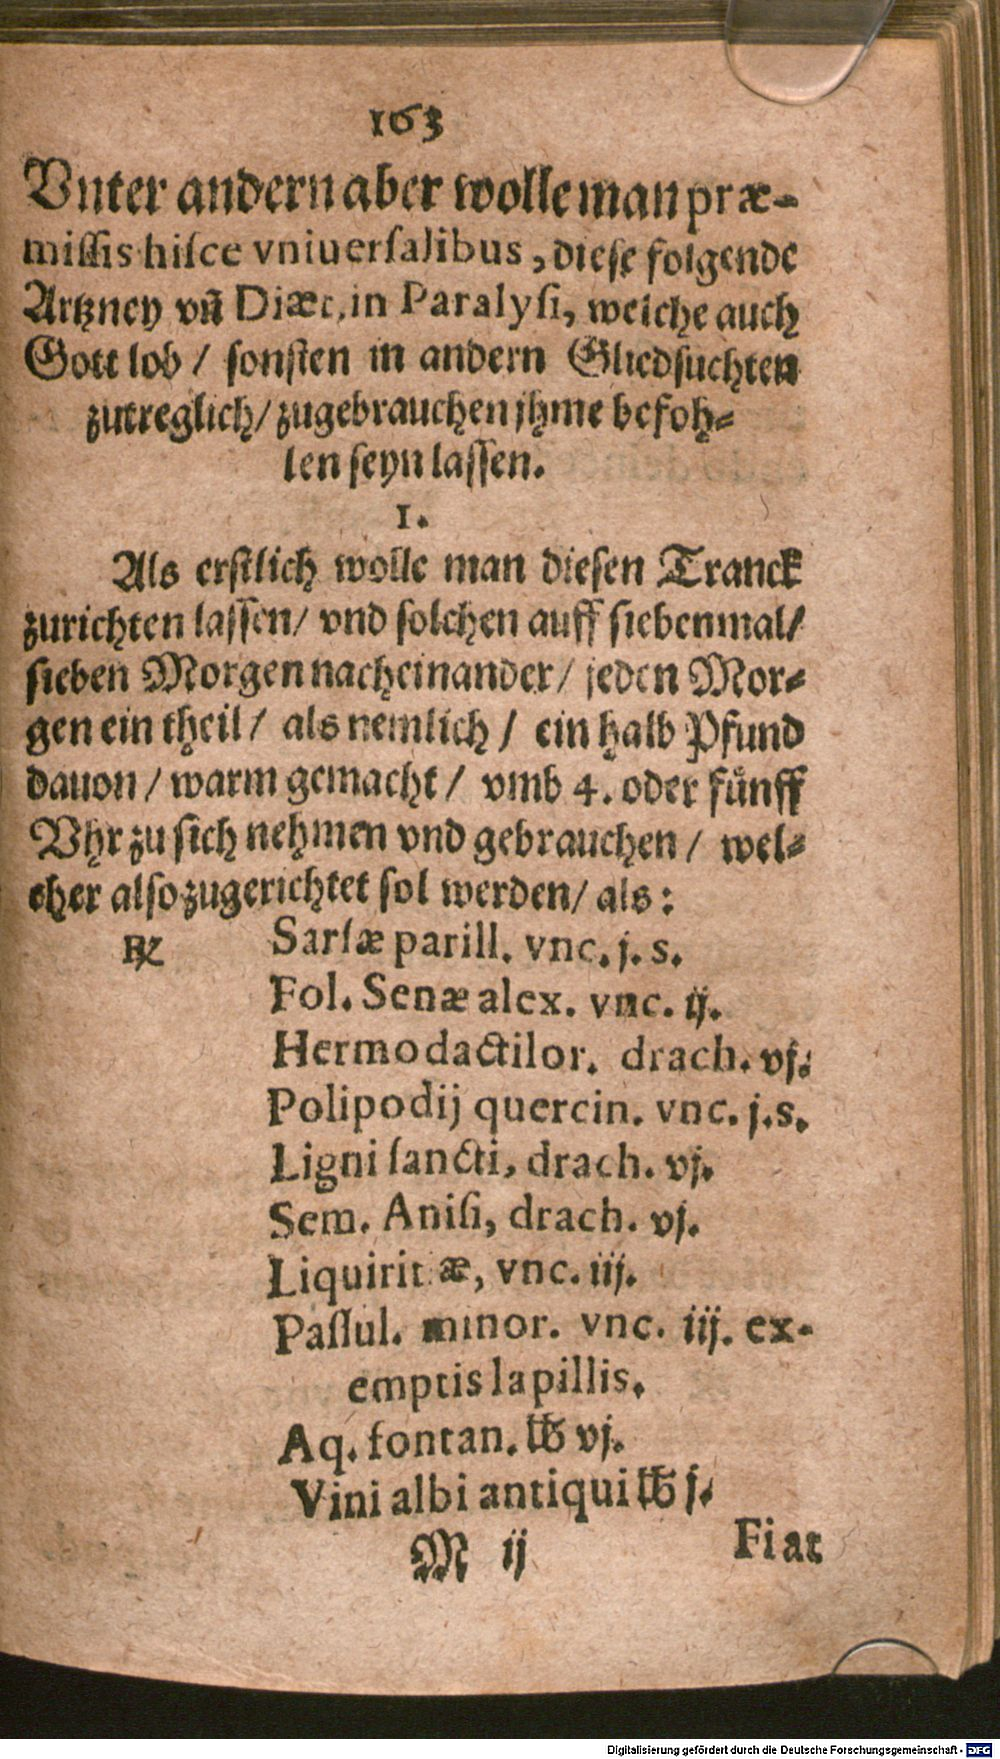 163
Vnter andern aber wolle man præ-
missis hisce vniuersalibus, diese folgende
Artzney vñ Diæt, in Paralysi, welche auch
Gott lob / sonsten in andern Gliedsuchten
zutreglich / zugebrauchen jhme befoh-
len seyn lassen.
1.
Als erstlich wolle man diesen Tranck
zurichten lassen / vnd solchen auff siebenmal /
sieben Morgen nacheinander / jeden Mor-
gen ein theil / als nemlich / ein halb Pfund
dauon / warm gemacht / vmb 4. oder fünff
Vhr zu sich nehmen vnd gebrauchen / wel-
cher also zugerichtet sol werden / als:
℞ Sarsæ parill. vnc. j. s.
Fol. Senæ alex. vnc. ij.
Hermodactilor. drach. vj.
Polipodij quercin. vnc. j. s.
Ligni sancti, drach. vj.
Sem. Anisi, drach. vj.
Liquiritæ, vnc. iij.
Passul. minor. vnc. iij. ex-
emptis lapillis.
Aq. fontan. ℔ vj.
Vini albi antiqui ℔ j.
M ij Fiat
Digitalisierung gefördert durch die Deutsche Forschungsgemeinschaft - DFG